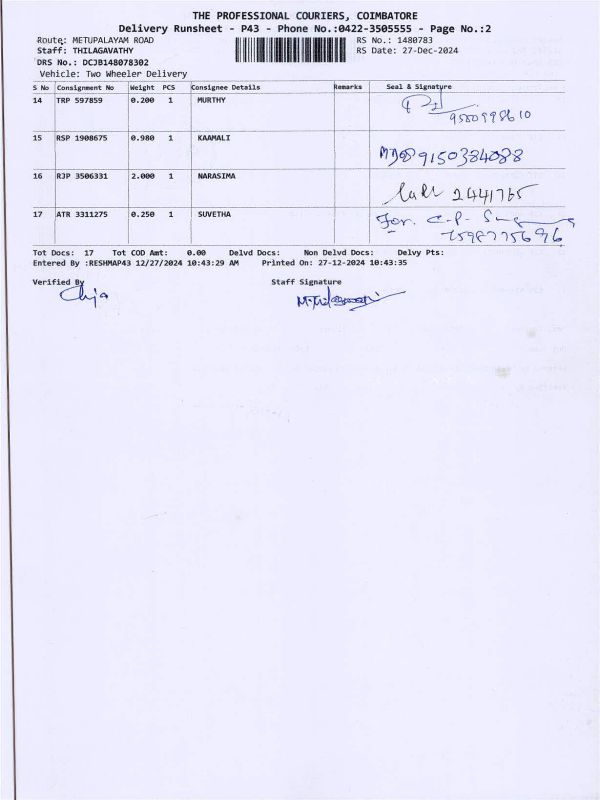 THE PROFESSIONAL COURIERS, COIMBATORE
Delivery Runsheet - P43 - Phone No.:0422-3505555 - Page No.:2
Route: METUPALAYAM ROAD RS No.: 1480783
Staff: THILAGAVATHY RS Date: 27-Dec-2024
DRS No.: DCJB148078302
Vehicle: Two Wheeler Delivery
S No Consignment No Weight PCS Consignee Details Remarks Seal & Signature
14 TRP 597859 0.200 1 MURTHY
9500998610
15 RSP 1908675 0.980 1 KAAMALI
9150384088
16 RJP 3506331 2.000 1 NARASIMA
2441765
17 ATR 3311275 0.250 1 SUVETHA For. C.P.
7598775696
Tot Docs: 17 Tot COD Amt: 0.00 Delvd Docs: Non Delvd Docs: Delvy Pts:
Entered By :RESHMAP43 12/27/2024 10:43:29 AM Printed On: 27-12-2024 10:43:35
Verified By Staff Signature